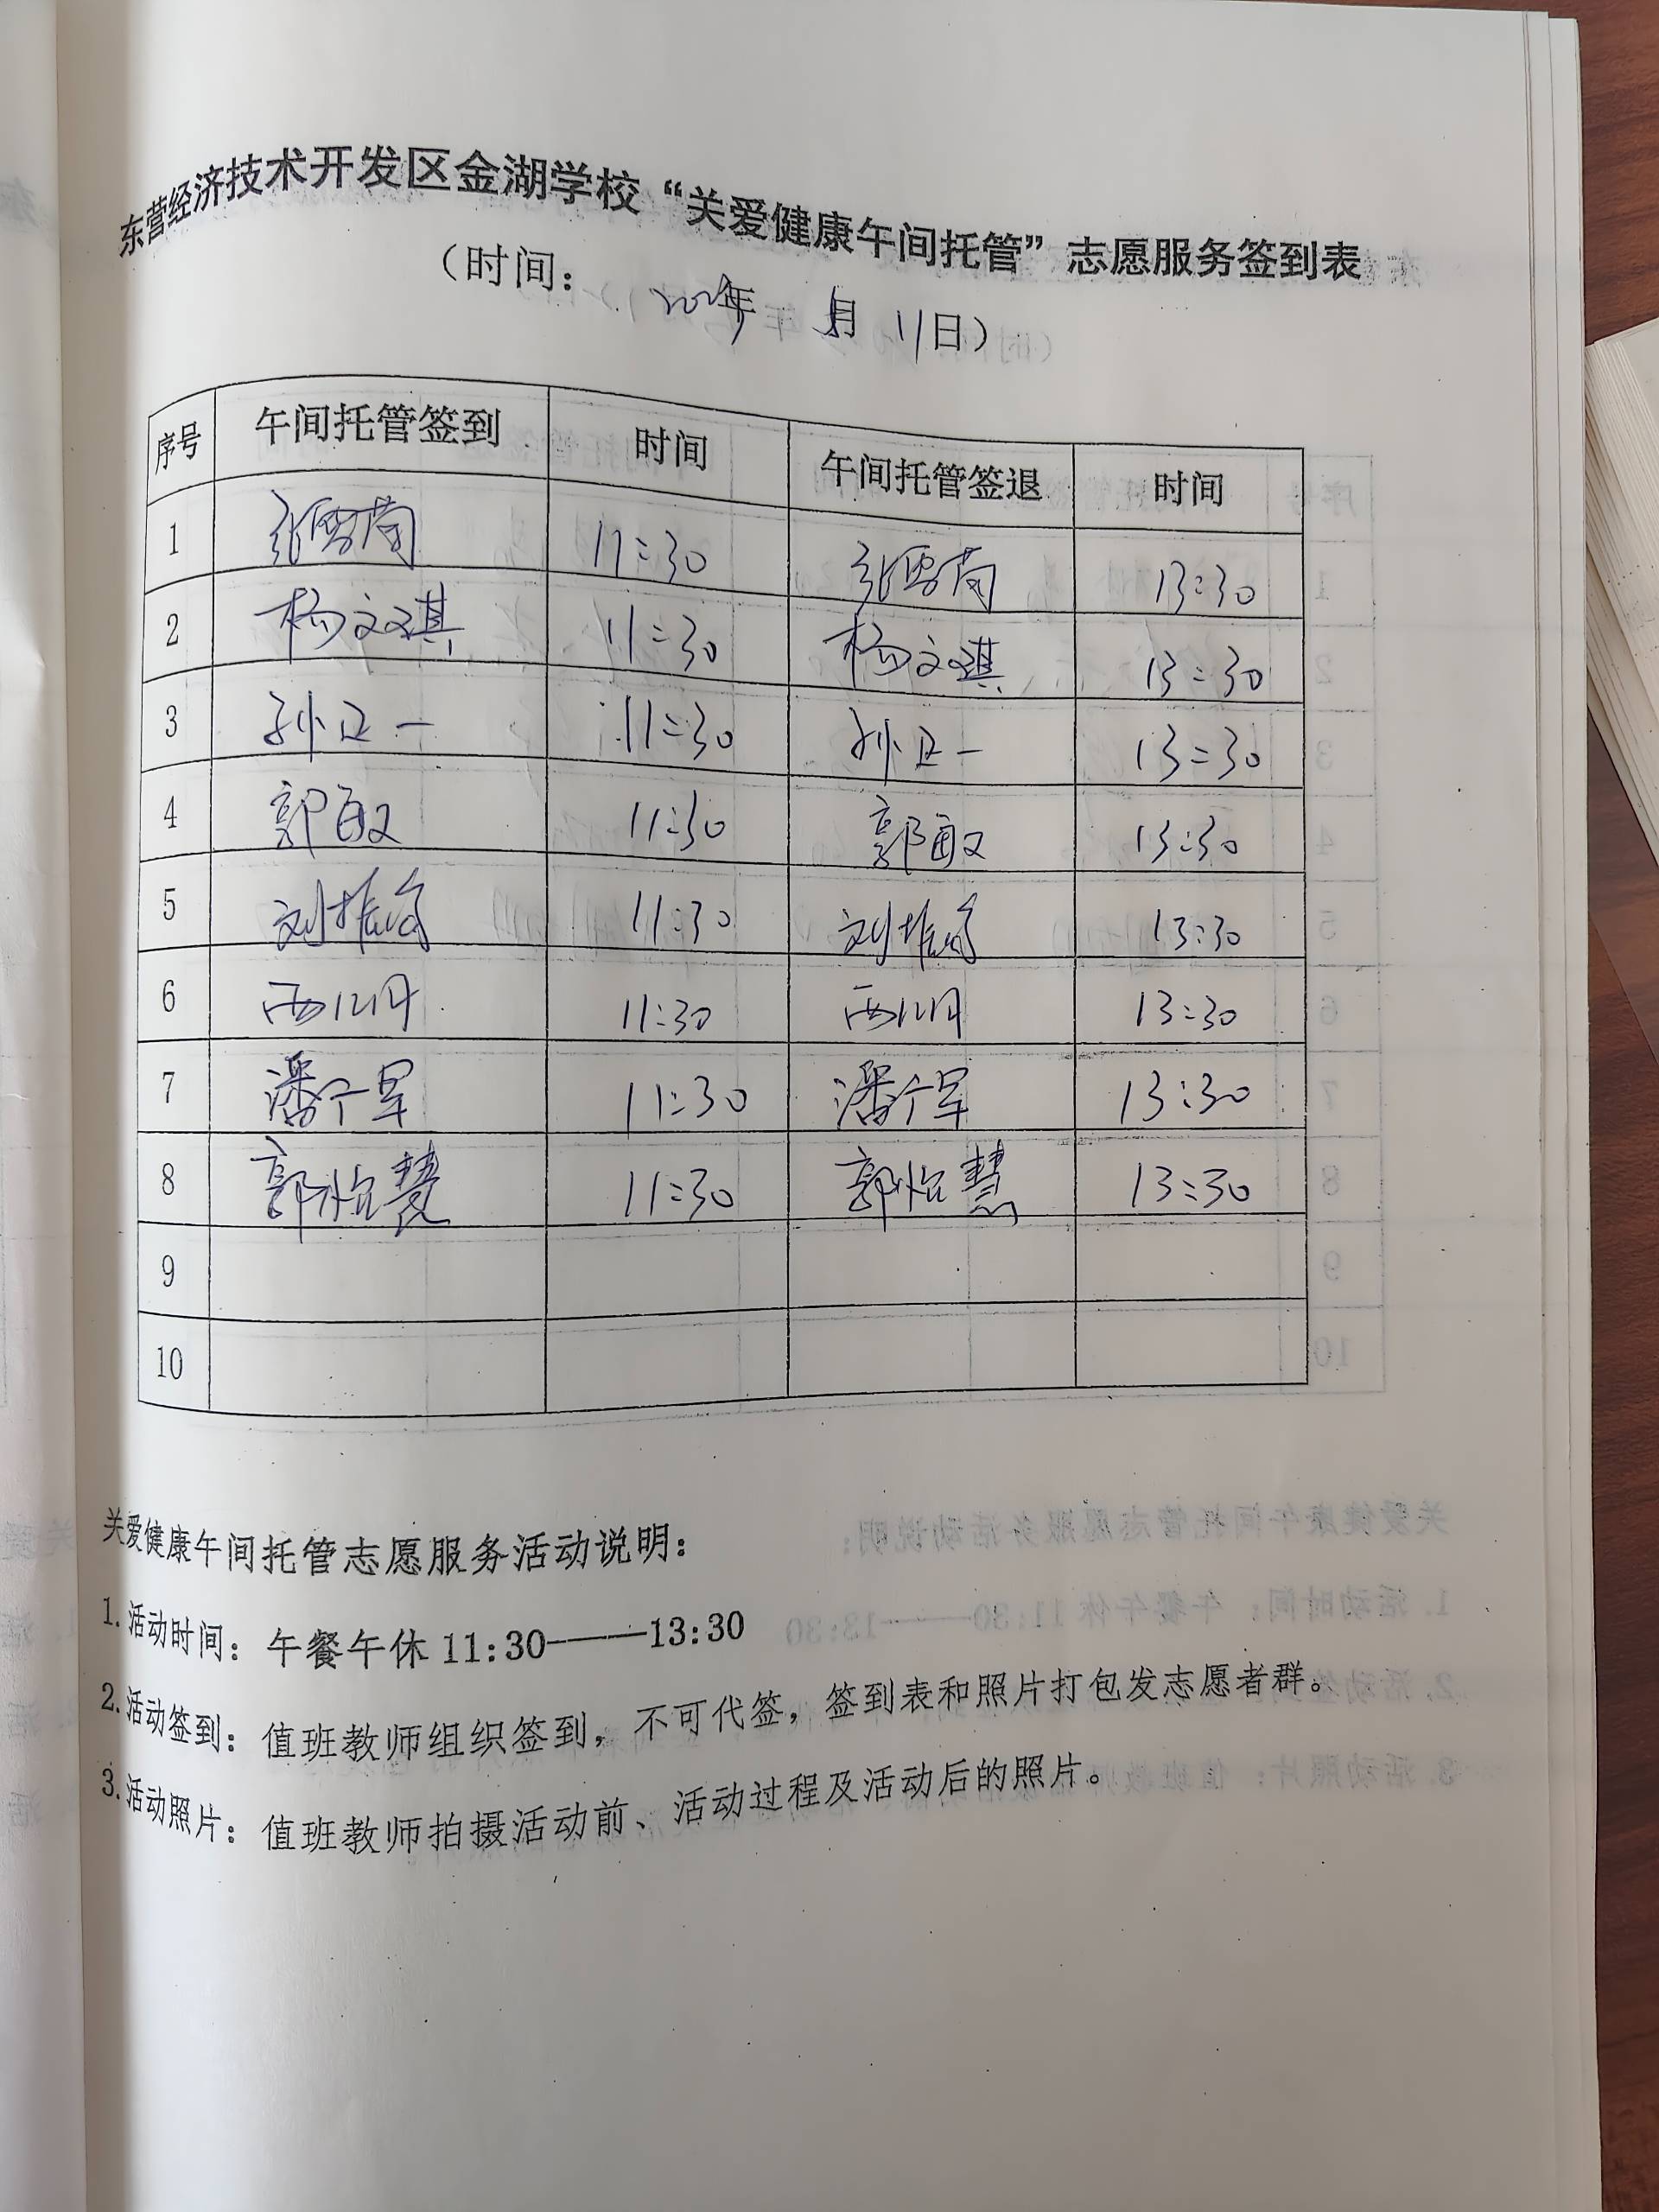 东营经济技术开发区金湖学校“关爱健康午间托管”志愿服务签到表
（时间： 年 月 11日）
序号 午间托管签到 时间 午间托管签退 时间
1 张雪菊 11:30 张雪菊 13:30
2 杨文琪 11:30 杨文琪 13:30
3 孙正一 11:30 孙正一 13:30
4 郭敏 11:30 郭敏 13:30
5 刘 11:30 刘 13:30
6 11:30 13:30
7 潘宁军 11:30 潘宁军 13:30
8 郭怡慧 11:30 郭怡慧 13:30
9
10
关爱健康午间托管志愿服务活动说明：
1.活动时间：午餐午休11:30———13:30
2.活动签到：值班教师组织签到，不可代签，签到表和照片打包发志愿者群。
3.活动照片：值班教师拍摄活动前、活动过程及活动后的照片。